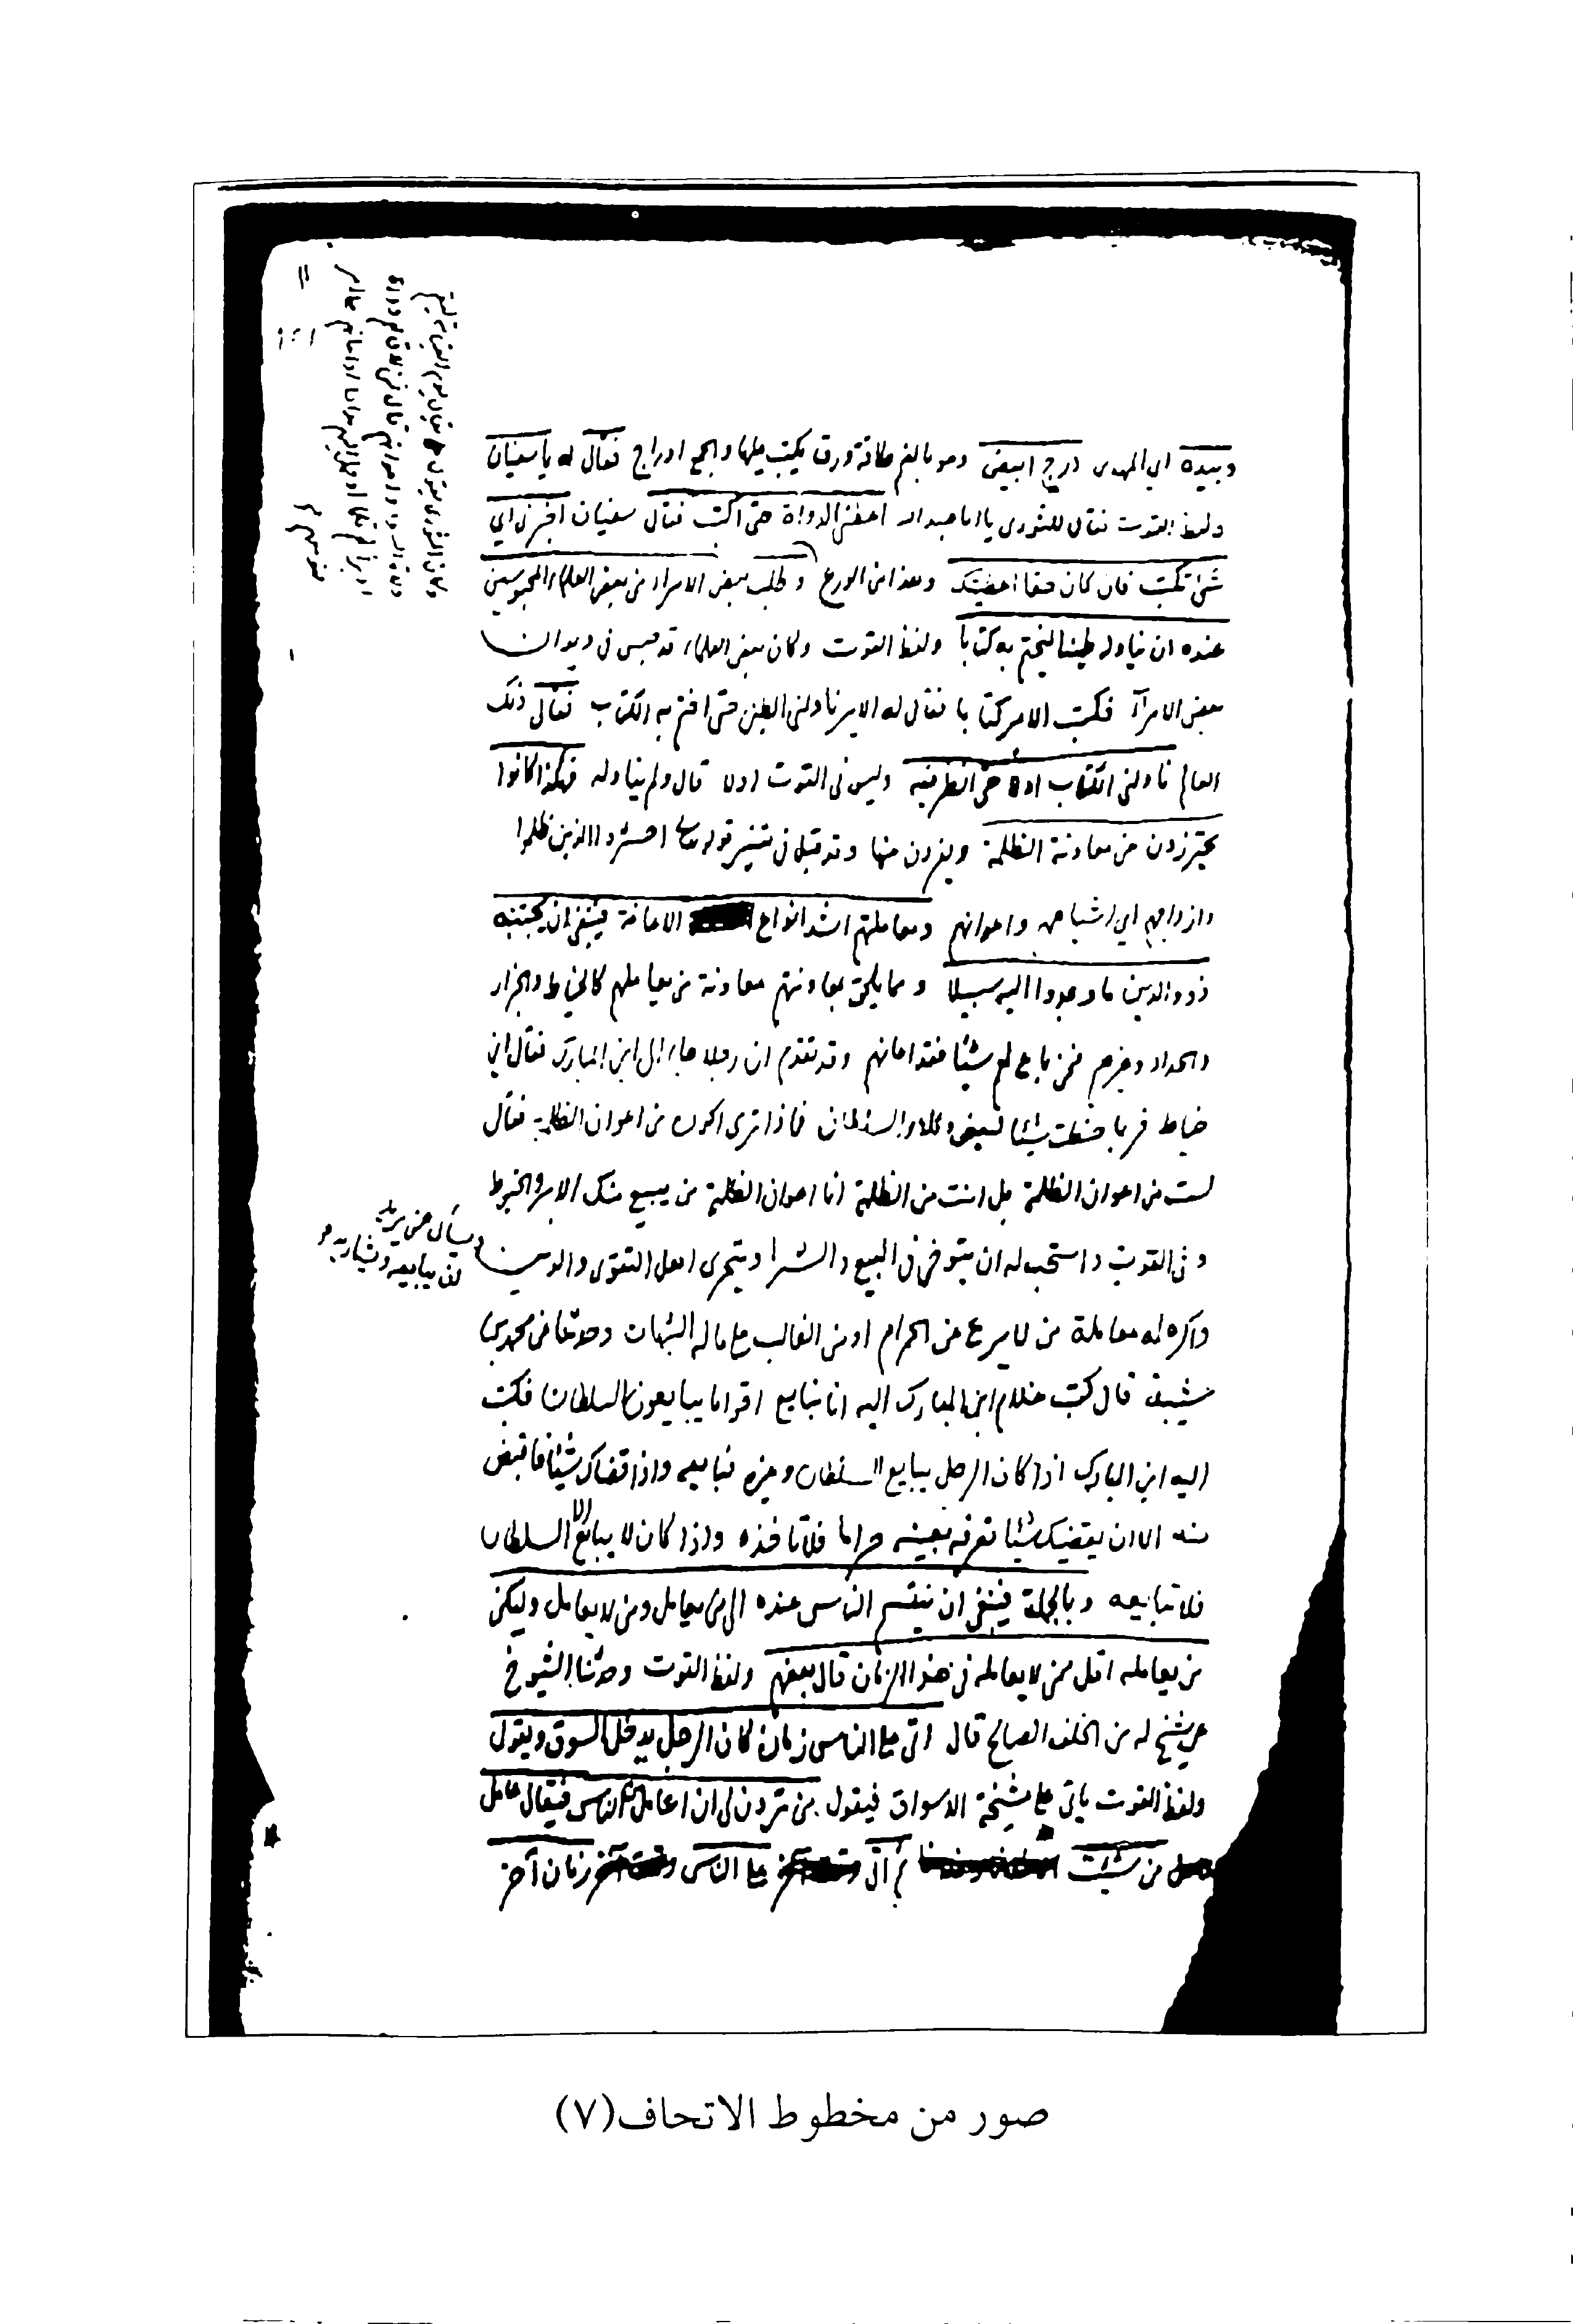 وبيده اي المهدى درج ابيض وهو بالفتح طاقة ورق يكتب عليها والجمع ادراج فقال له يا سفيان
ولفظ القوت فقال للثورى يا ابا عبد الله اعطنى الدواة حتى اكتب فقال سفيان اخبرنى اي
شئ تكتب فان كان حقا اعطيتك وهذا من الورع وطلب بعض الامراء من بعض العلماء المحبوسين
عنده ان يناوله طينا ليختم به كتابا ولفظ القوت وكان بعض العلماء قد حبس فى ديوان
بعض الامرآ فكتب الامير كتابا فقال له الامير ناولنى الطين حتى اختم به الكتاب فقال ذلك
العالم ناولنى الكتاب اولا حتى انظر فيه وليس فى القوت اولا قال ولم يناوله فهكذا كانوا
يحترزون من معاونة الظلمة ويفرون منها وقد قيل فى تفسير قوله تعالى احشروا الذين ظلموا
وازواجهم اي اشباههم واعوانهم ومعاملتهم اشد انواع الاعانة فينبغى ان يجتنبه
ذوو الدين ما وجدوا اليه سبيلا ومما يلحق بمعاونتهم معاونة من يعاملهم كالخياط والجزار
والحداد وغيرهم فمن باع لهم شيئا فقد اعانهم وقد تقدم ان رجلا جاء الى ابن المبارك فقال انى
خياط فربما خطت شيئا لبعض وكلاء السلطان فماذا ترى اكون من اعوان الظلمة فقال
لست من اعوان الظلمة بل انت من الظلمة انما اعوان الظلمة من يبيع منك الابر والخيوط
وفى القوت واستحب له ان يتوخى فى البيع والشرا ويتحرى اهل التقوى والدين
ويسأل عمن يريد
ان يبايعه ويشاريه و
واكره له معاملة من لا يرع عن الحرام او من الغالب على ماله الشبهات وحدثنا عن محمد بن
شيبة قال كتب غلام ابن المبارك اليه انا نبايع اقواما يبايعون السلطان فكتب
اليه ابن المبارك اذا كان الرجل يبايع السلطان وغيره فبايعه واذا قضاك شيئا فاقبض
منه الا ان يقضيك شيئا تعرفه بعينه حراما فلا تاخذه واذا كان لا يبايع الا السلطان
فلا تبايعه وبالجملة فينبغى ان ينقسم الناس عنده الى من يعامل ومن لا يعامل وليكن
من يعامله اقل ممن لا يعامله فى هذا الزمان قال بعضهم ولفظ القوت وحدثنا الشيوخ
عن شيخ له من الخلف الصالح قال اتى على الناس زمان كان الرجل يدخل السوق ويقول
ولفظ القوت ياتى على مشيخة الاسواق فيقول من ترون لى ان اعامل من الناس فيقال عامل
من شئت ثم اتى على الناس زمان آخر
صور من مخطوط الاتحاف(٧)